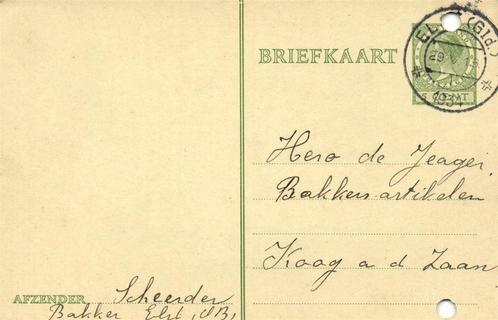 BRIEFKAART
ELST (Gld.)
29
1934
5 CENT
Hero de Jeager,
Bakkers artikelen
Koog a d Zaan
AFZENDER Scheerder
Bakker Elst